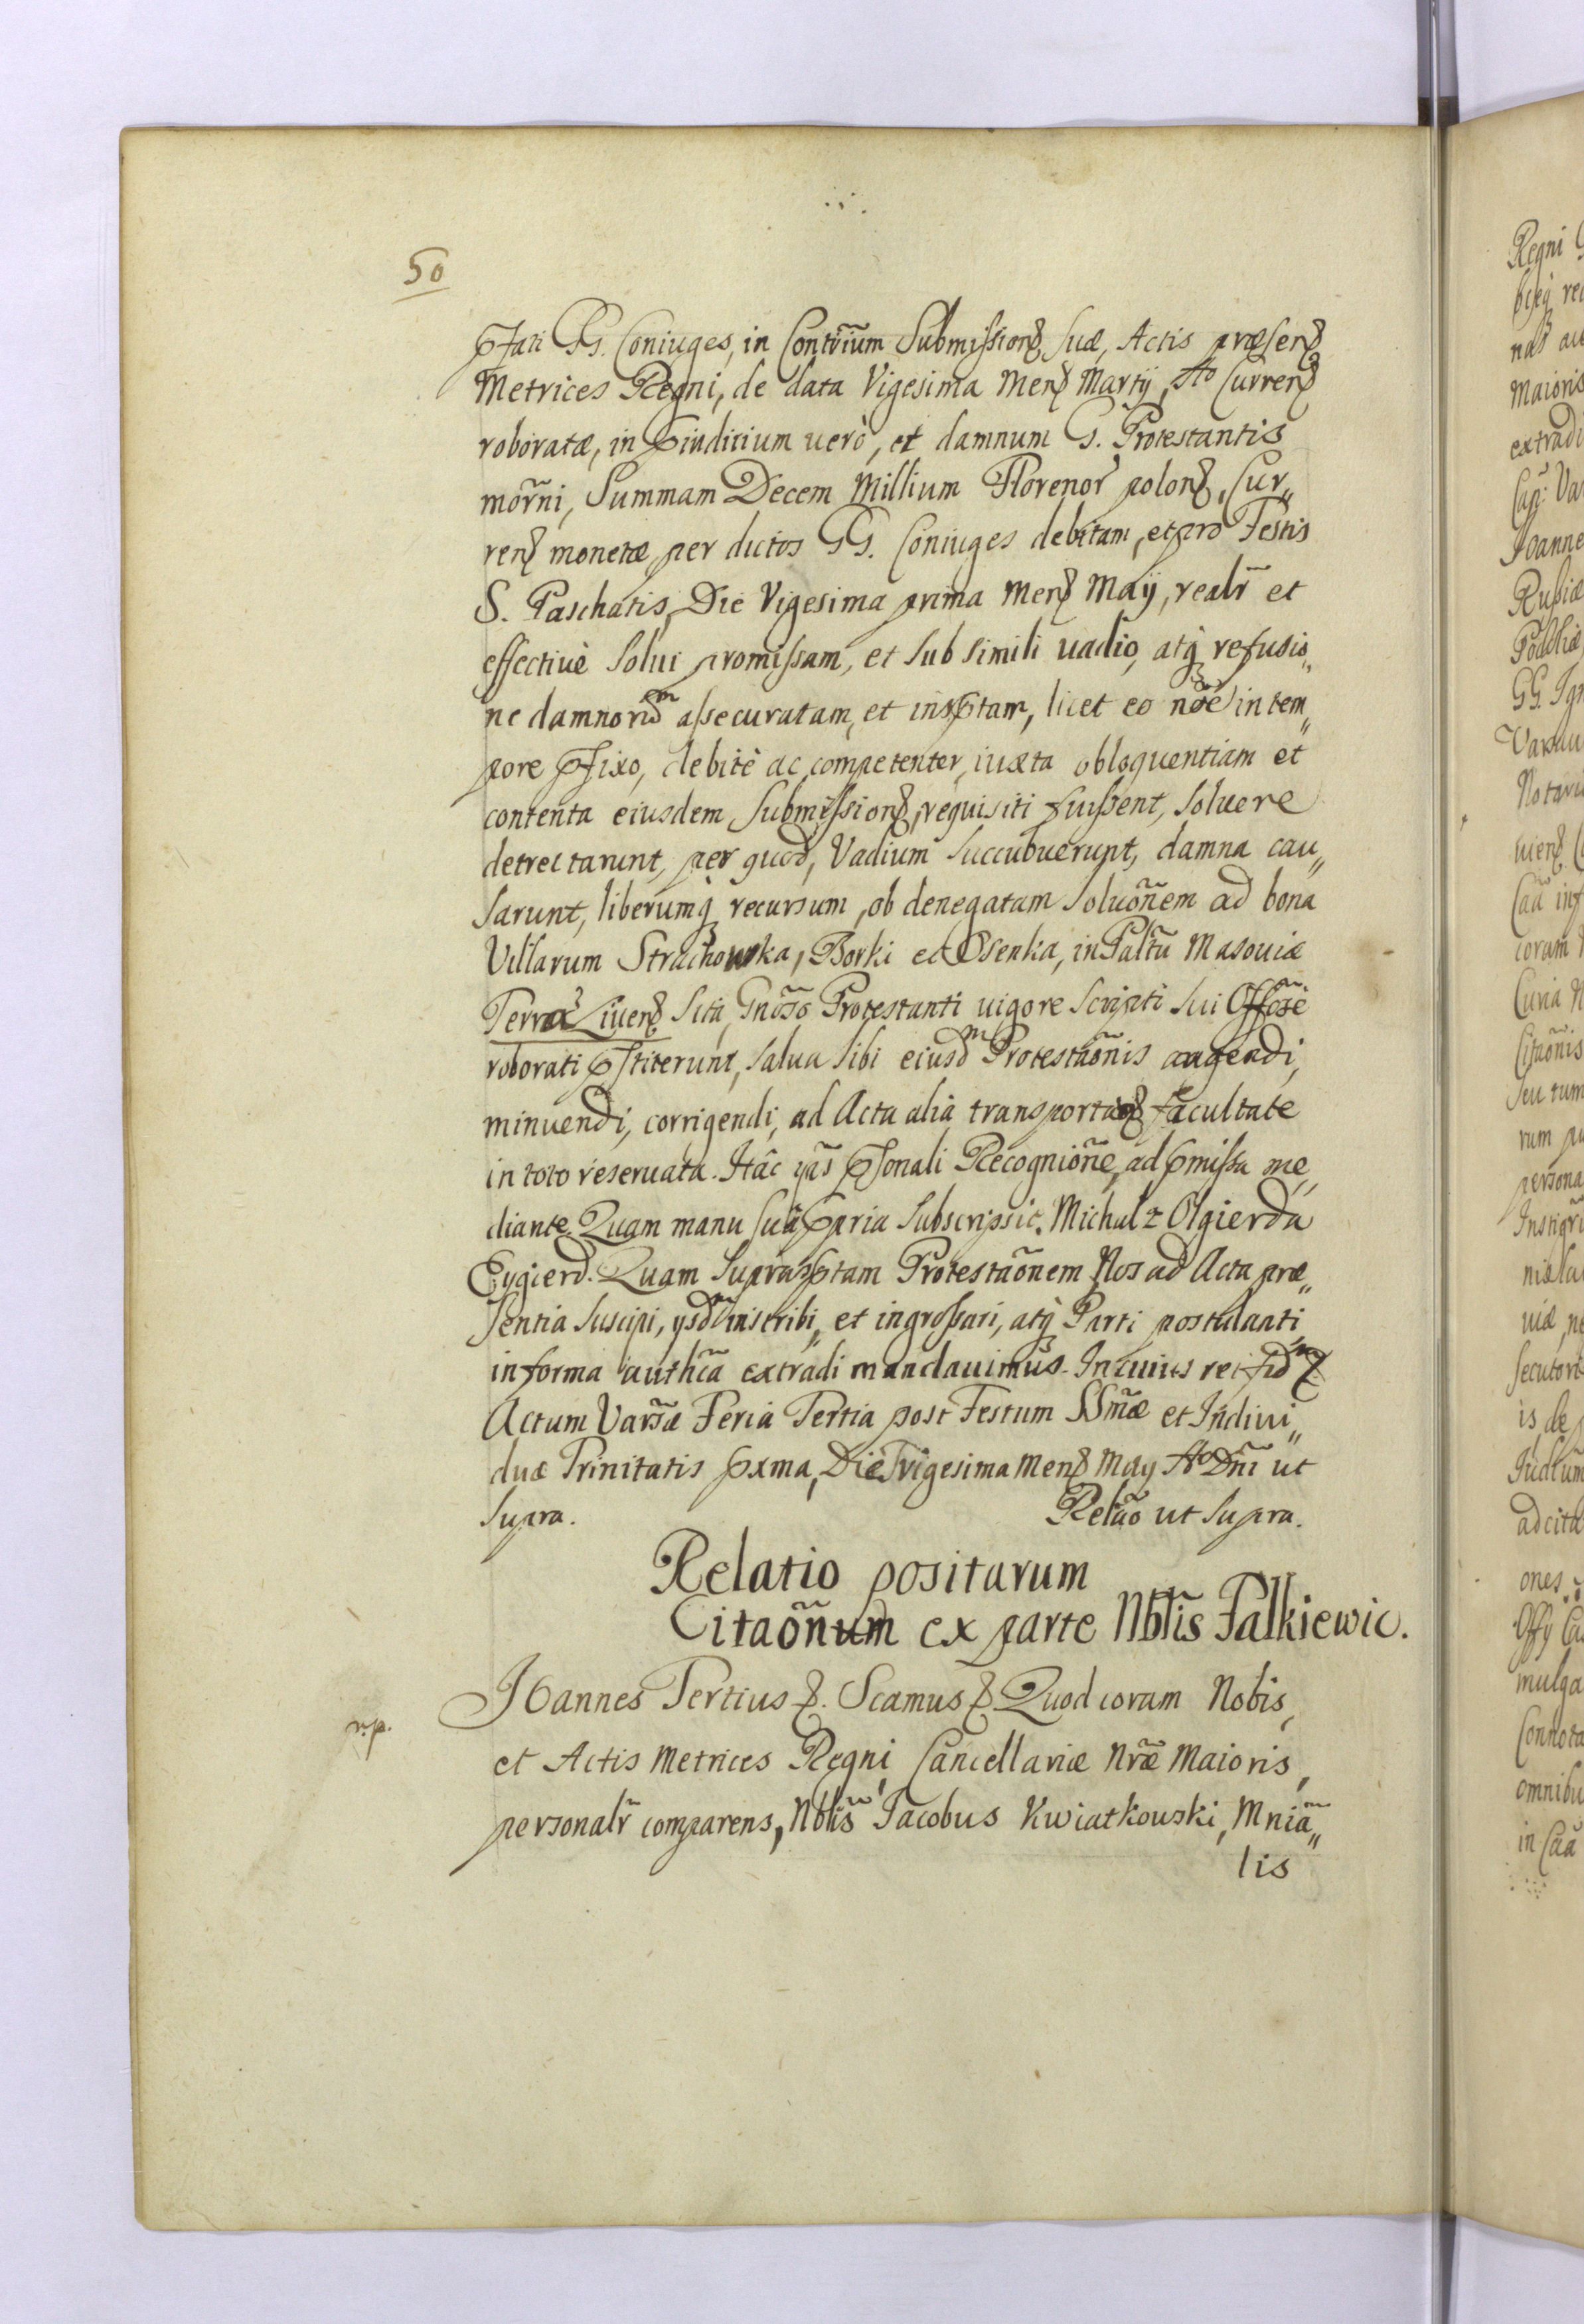 50
Pfati GG. Coniuges, in Contrĩum Submißionꝫ suæ, Actis præsenꝫ
Metrices Regni, de data Vigesima Menꝫ Martij, Aº Currenꝫ
roboratæ, in Piudicium uerò, et damnum G. Protestantis
mor̃ni, Summam Decem Millium Florenor polonꝫ, Cur„
renꝫ monetæ per dictos GG. Coniuges debitam, et pro Festis
S. Paschatis, Die Vigesima prima Menꝫ Maÿ, realr̃ et
effectiuè Solui promißam, et Sub Simili uadio, atqꝫ refusio„
ne damnorũm aßecuratam, et insptam, licet eo nõe in tem„
pore Pfixo, debitè ac competenter, iuxta obloquentiam et
contenta eiusdem Submißionꝫ, requisiti fuißent, Soluere
detrectarunt, per quod, Vadium Succubuerunt, damna cau„
sarunt, liberumqꝫ recursum, ob denegatam Soluõnem ad bona
Villarum Strachowka, Borki et Osenka, in Paltũ Masouiæ
Terra Liuenꝫ Sita, Gnõso Protestanti uigore Scripti Sui Offõse
roborati Pstiterunt, Salua Sibi eiusdm Protestaõnis augendi,
minuendi, corrigendi, ad Acta alia transportandꝫ facultate
in toto reseruata. Hâc yãs Psonali Recogniõne, ad Pmißa me„
diante. Quam manu Suâ Ppria Subscripsit. Michal z Olgierda
Eygierd. Quam Suprasptam Protestaõnem Nos ad Acta præ„
sentia Suscipi, ysdm inscribi, et ingroßari, atqꝫ Parti postulanti
in forma authc̃a extradi mandauimus. In cuius rei fidm ꝫ
Actum Varsæ̃ Feriâ Tertia post Festum SSmæ̃ et Indiui„
duæ Trinitatis Pxma, Die Trigesima Menꝫ May Aº Dñi ut
Supra. Relaõ ut Supra.
Relatio positarum
Citaõnum ex parte Nblĩs Falkiewic.
r.p.
JOannes Tertius ꝫ. Scamus ꝫ Quod coram Nobis,
et Actis Metrices Regni Cancellariæ Nræ̃ Maioris,
personalr̃ comparens, Nblĩs Jacobus Kwiatkowski, Mniã„
lis